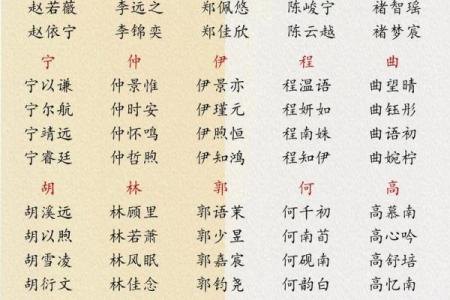 赵若薇 李远之 郑佩悠 陈峻宁 褚智瑶
赵依宁 李锦奕 郑佳欣 陈云越 褚梦宸
宁 仲 伊 程 曲
宁以谦 仲景惟 伊景亦 程温语 曲望晴
宁尔航 仲时安 伊瑾元 程妍如 曲钰彤
宁靖远 仲怀鸣 伊煦恒 程南姝 曲语初
宁睿廷 仲哲煦 伊知鸿 程知伊 曲婉柠
胡 林 郭 何 高
胡溪远 林顾里 郭语茉 何千初 高慕南
胡以煦 林若萧 郭少昱 何南荀 高心吟
胡雪凌 林风眠 郭嘉宸 何砚南 高舒培
胡衍文 林佳念 郭钧尧 何韵白 高忆南